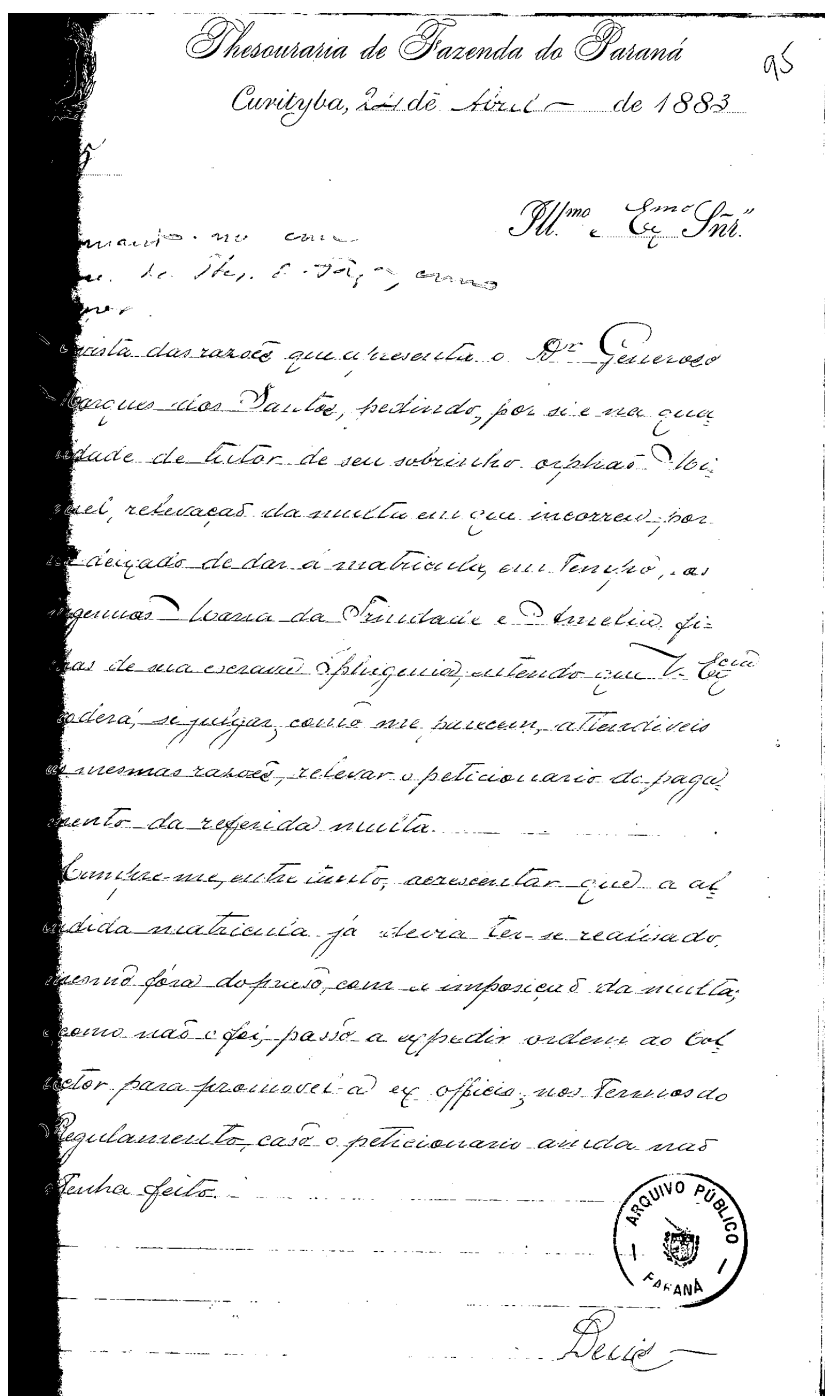 Thesouraria de Fazenda do Paraná
95
Curityba, 24 de Abril de 1883
Ill.mo e Exmo Snr.
no
de como
vista das razoẽs que apresenta o Dr Generoso
Marques dos Santos, pedindo, por si e na qua-
lidade de tutor de seu sobrinho orphaõ Mi-
guel, relevaçaõ da multa em que incorreu, por
deixado de dar á matricula, em tempo, as
ingenuas Maria da Trindade e Amelia, fi-
lhas de sua escrava Iphigenia, entendo que V. Excia
poderá, si julgar, como me parecem, attendiveis
as mesmas razoẽs, relevar o peticionario do paga-
mento da referida multa.
Cumpre-me, entretanto, acrescentar que a al-
ludida matricula já devia ter-se realisado,
mesmo fóra do praso, com a imposiçaõ da multa;
e como naõ o foi, passo a expedir ordem ao Col-
lector para promovel-a ex officio, nos termos do
Regulamento, caso o peticionario ainda naõ
tenha feito.
ARQUIVO PÚBLICO
PARANÁ
Deus